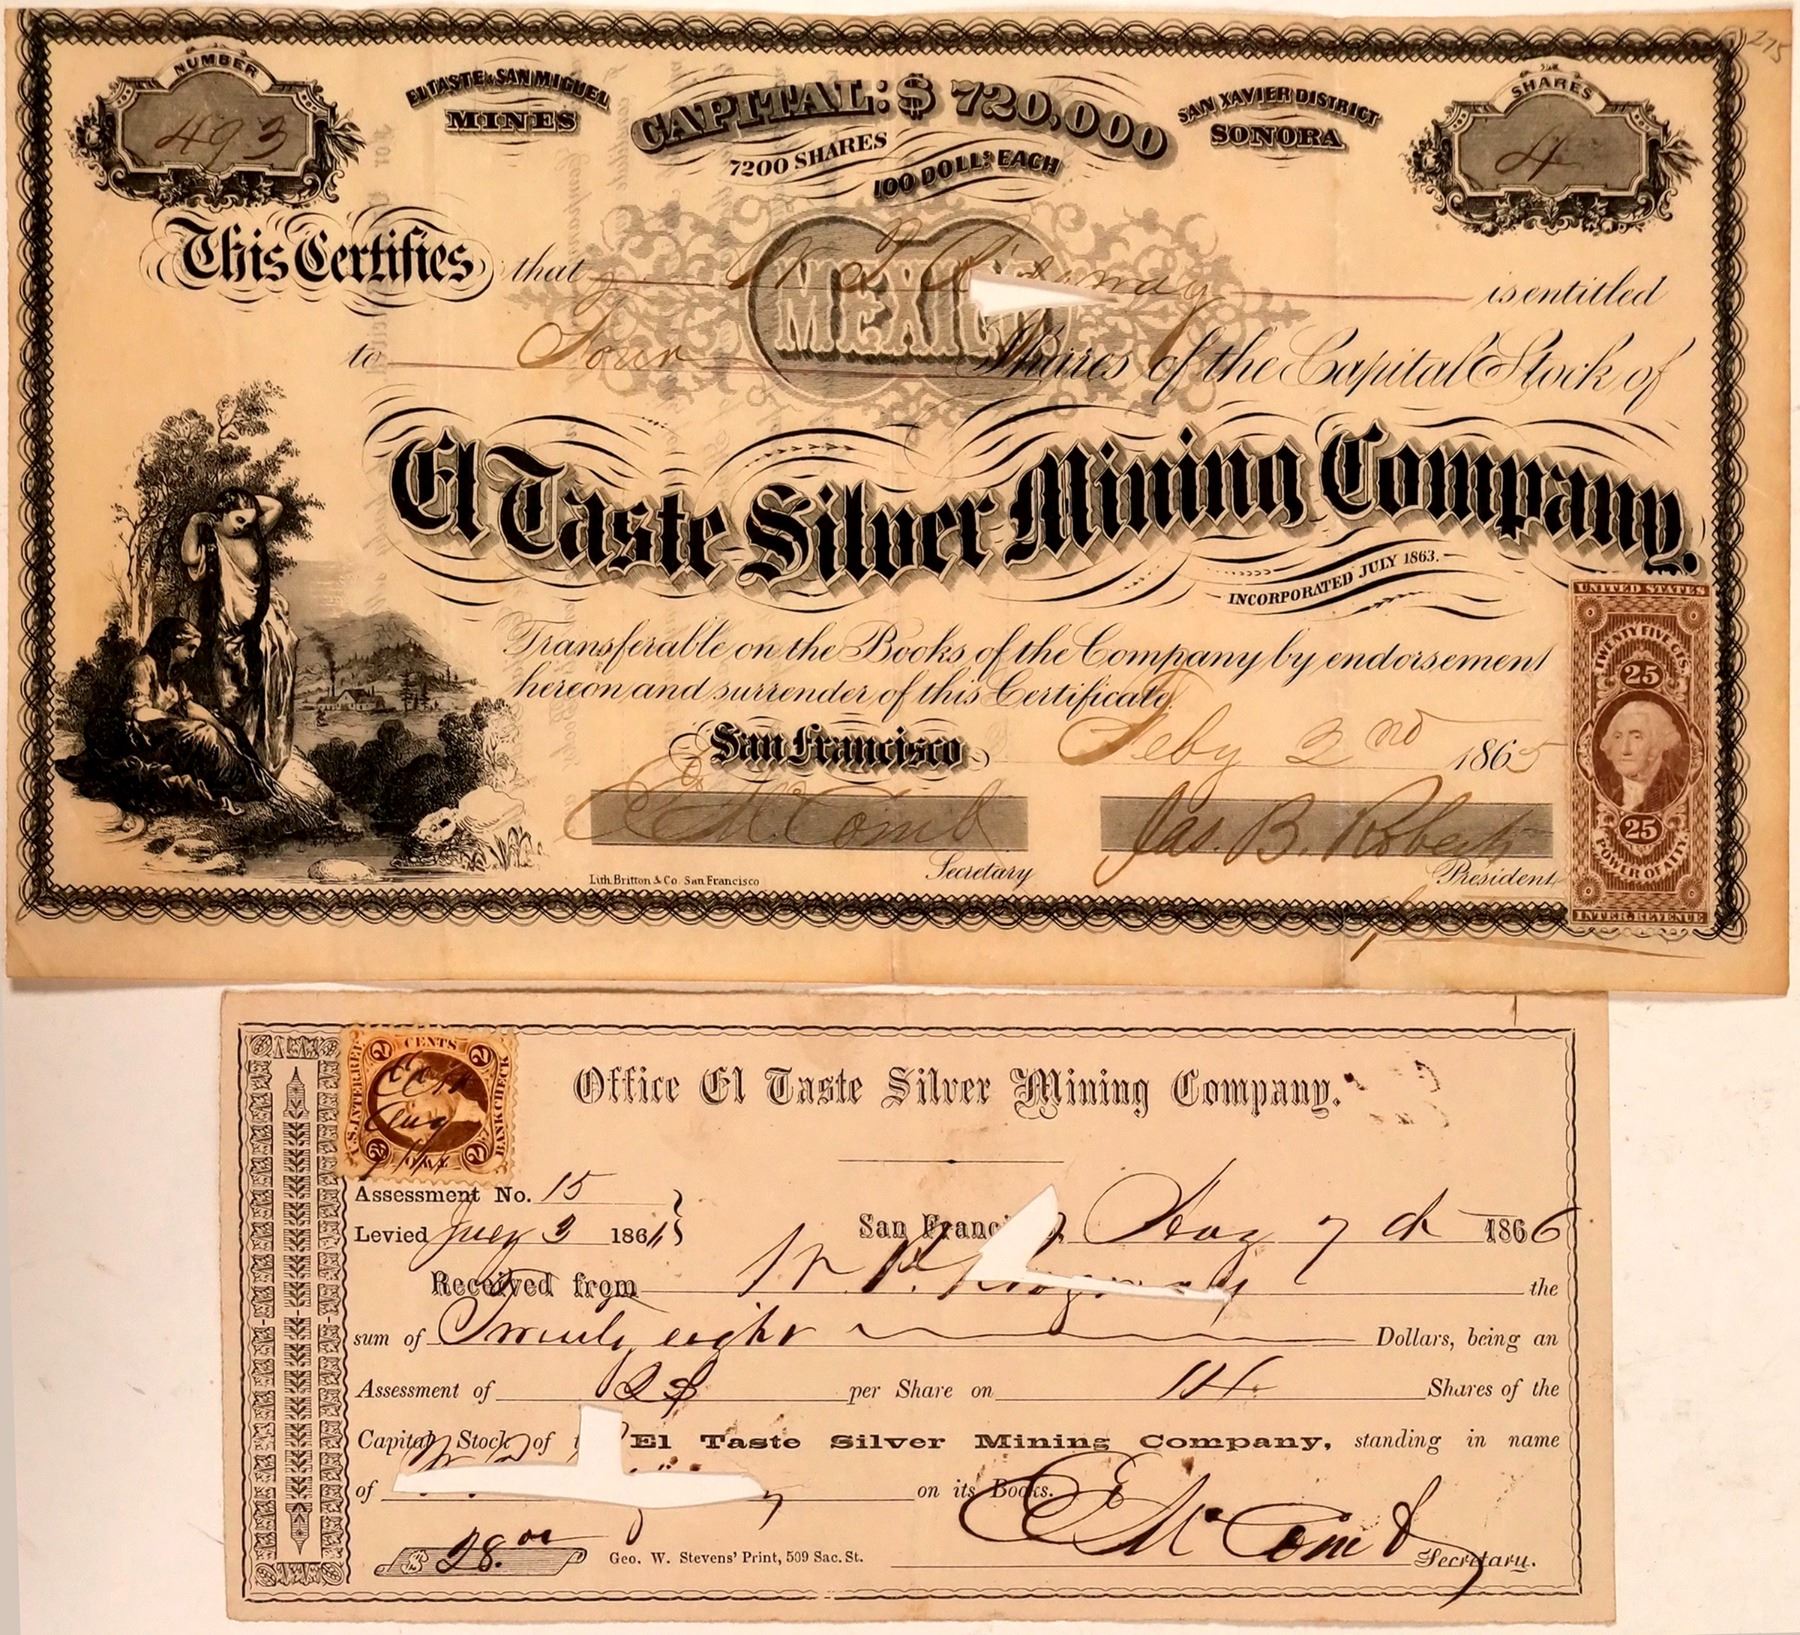 275
NUMBER
493
EL TASTE & SAN MIGUEL
MINES
CAPITAL: $ 720,000
7200 SHARES
100 DOLLS EACH
SAN XAVIER DISTRICT
SONORA
SHARES
4
MEXICO
This Certifies that is entitled
to Four Shares of the Capital Stock of
El Taste Silver Mining Company.
INCORPORATED JULY 1863.
Transferable on the Books of the Company by endorsement
hereon and surrender of this Certificate.
San Francisco Feby 2nd 1865
E McComb
Secretary
Jas. B. Roberts
President
Lith. Britton & Co. San Francisco
UNITED STATES
TWENTY FIVE CTS.
25
25
POWER OF ATT'Y.
INTER. REVENUE
U.S. INTER. REV.
2 CENTS 2
BANK CHECK
2 2
Aug
Office El Taste Silver Mining Company.
Assessment No. 15
Levied July 3 186
San Franc Aug 7th 1866
Received from the
sum of Twenty eight Dollars, being an
Assessment of per Share on 14 Shares of the
Capital Stock of El Taste Silver Mining Company, standing in name
of on its Books.
$ 28.00
Geo. W. Stevens' Print, 509 Sac. St.
E McComb
Secretary.